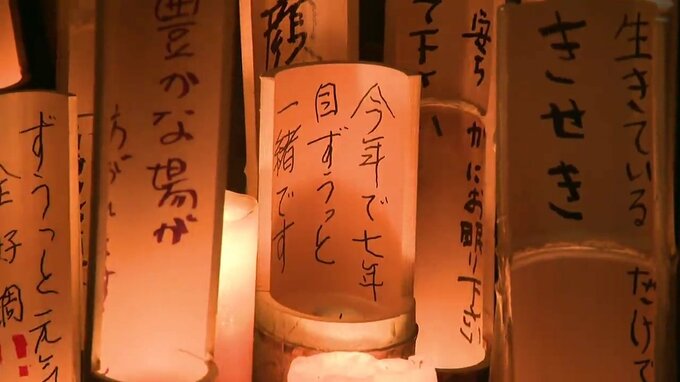 生きている
だけで
きせき
安らかにお眠り下さい
て下さい
今年で七年
目ずうっと
一緒です
顔
豊かな場が
ずうっと元気
全好調!!